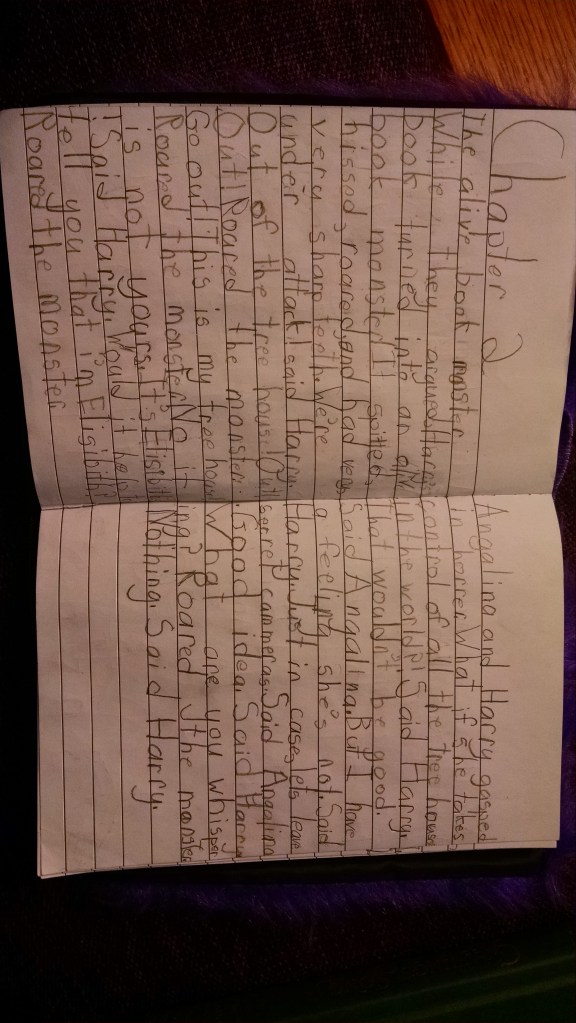 Chapter 2
The alive book monster
While they argued, Harry's
book turned into an alive
book monster! It spitted,
hissed, roared, and had very
very sharp teeth. We're
under attack! said Harry.
Out of the tree house! Out!
Out! Roared the monster.
Go out! This is my tree house
Roared the monster. No it
is not yours. It's
! Said Harry. Would it help if I
tell you that i'm Eligibith!
Roared the monster
Angalina and Harry gasped
in horrer. What if she takes
control of all the tree houses
in the world?! Said Harry
That wouldn't be good.
Said Angalina. But I have
a feeling she's not. Said
Harry. Just in case, let's leave
secret cammeras. Said Angelina
Good idea. Said Harry
What are you whisper
ing? Roared the manster
Nothing. Said Harry.